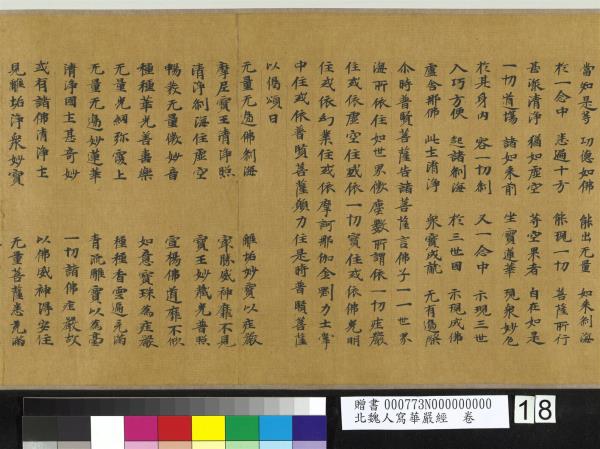 當知是等 功德如佛 能出无量 如來刹海
於一念中 悉遍十方 能現一切 菩薩所行
甚深清淨 猶如虛空 等空果者 自在如是
一切道場 諸如來前 坐寶蓮華 現衆妙色
於其身內 容一切刹 又一念中 示現三世
入巧方便 起諸刹海 於三世因 示現成佛
盧舍那佛 此土清淨 衆寶成就 无有過隙
尒時普賢菩薩告諸菩薩言佛子一一世界
海所依住如世界微塵數所謂依一切莊嚴
住或依虛空住或依一切寶住或依佛光明
住或依幻業住或依摩訶那伽金剛力士掌
中住或依普賢菩薩願力住是時普賢菩薩
以偈頌曰
无量无邊佛刹海 離垢妙寶以莊嚴
摩尼寶王清淨照 最勝威神靡不見
清淨刹海住虛空 寶王妙藏光普照
暢發无量微妙音 宣楊佛道靡不
種種華光善書樂 如意寶珠為莊嚴
无量光網弥覆上 種種香雲遍充滿
无量无邊妙蓮華 青流離寶以為莖
清淨國土甚奇妙 一切諸佛莊嚴故
或有諸佛清淨土 以佛威神得安住
見離垢淨衆妙寶 无量菩薩悉充滿
贈書 000773N000000000
北魏人寫華嚴經 卷
18